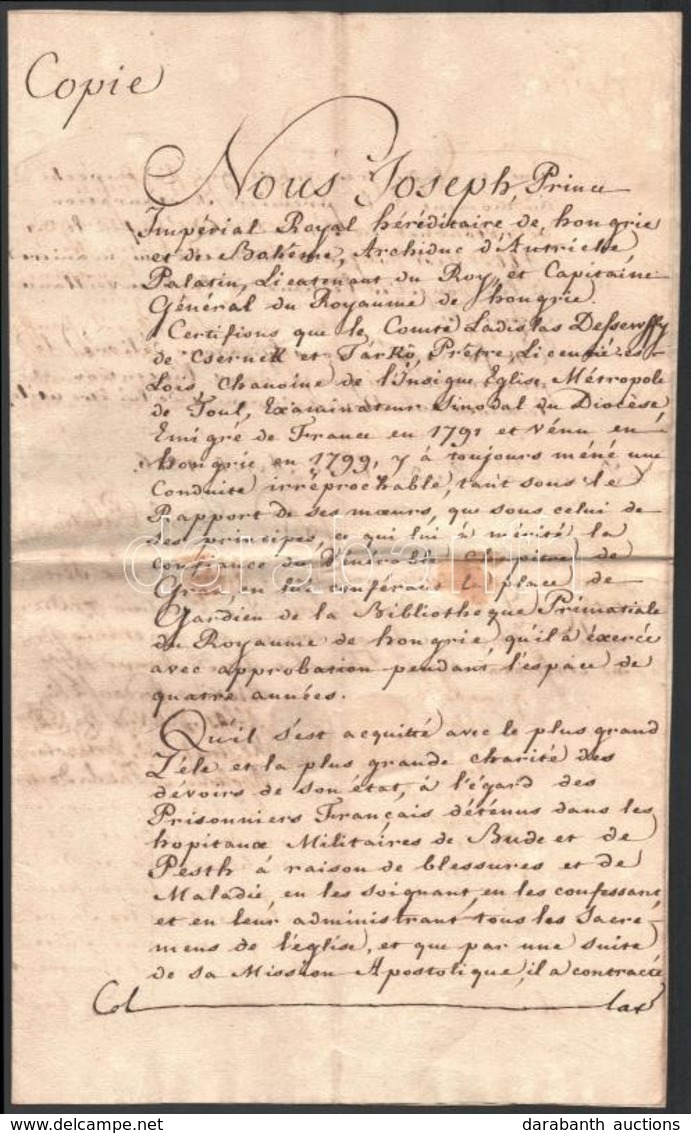 Copie
Nous Joseph, Prince
Impérial Royal héréditaire de hongrie
et de Bahême, Archiduc d'Autriche
Palatin, Lieutenant du Roy, et Capitaine
Général du Royaume de hongrie.
Certifions que le Comte Ladislas Dessewffy
de Csernek et Tarkö, Prêtre, Licentié es
Lois, Chanoine de l'Insigne Eglise Métropole
de Toul, Examinateur Sinodal du Diocèse
Emigré de France en 1791 et vénu en
hongrie en 1799, y à toujours méné une
Conduite irréprochable, tant sous le
Rapport de ses mœurs, que sous celui de
ses principes, ce qui lui à mérité la
confiance du Vénérable Chapitre de
Gran, en lui conférant la place de
Gardien de la Bibliotheque Primatiale
du Royaume de hongrie qu'il à éxercée
avec approbation pendant l'espace de
quatre années.
Qu'il s'est acquitté avec le plus grand
Zéle et la plus grande charité des
dévoirs de son état, à l'égard des
Prisonniers Français détenus dans les
hopitaux Militaires de Bude et de
Pesth à raison de blessures et de
Maladie, en les soignant, en les confessant,
et en leur administrant tous les Sacre-
mens de l'église, et que par une suite
de sa Mission Apostolique, il a contracté
Col lat
darabanth
darabanth auctions